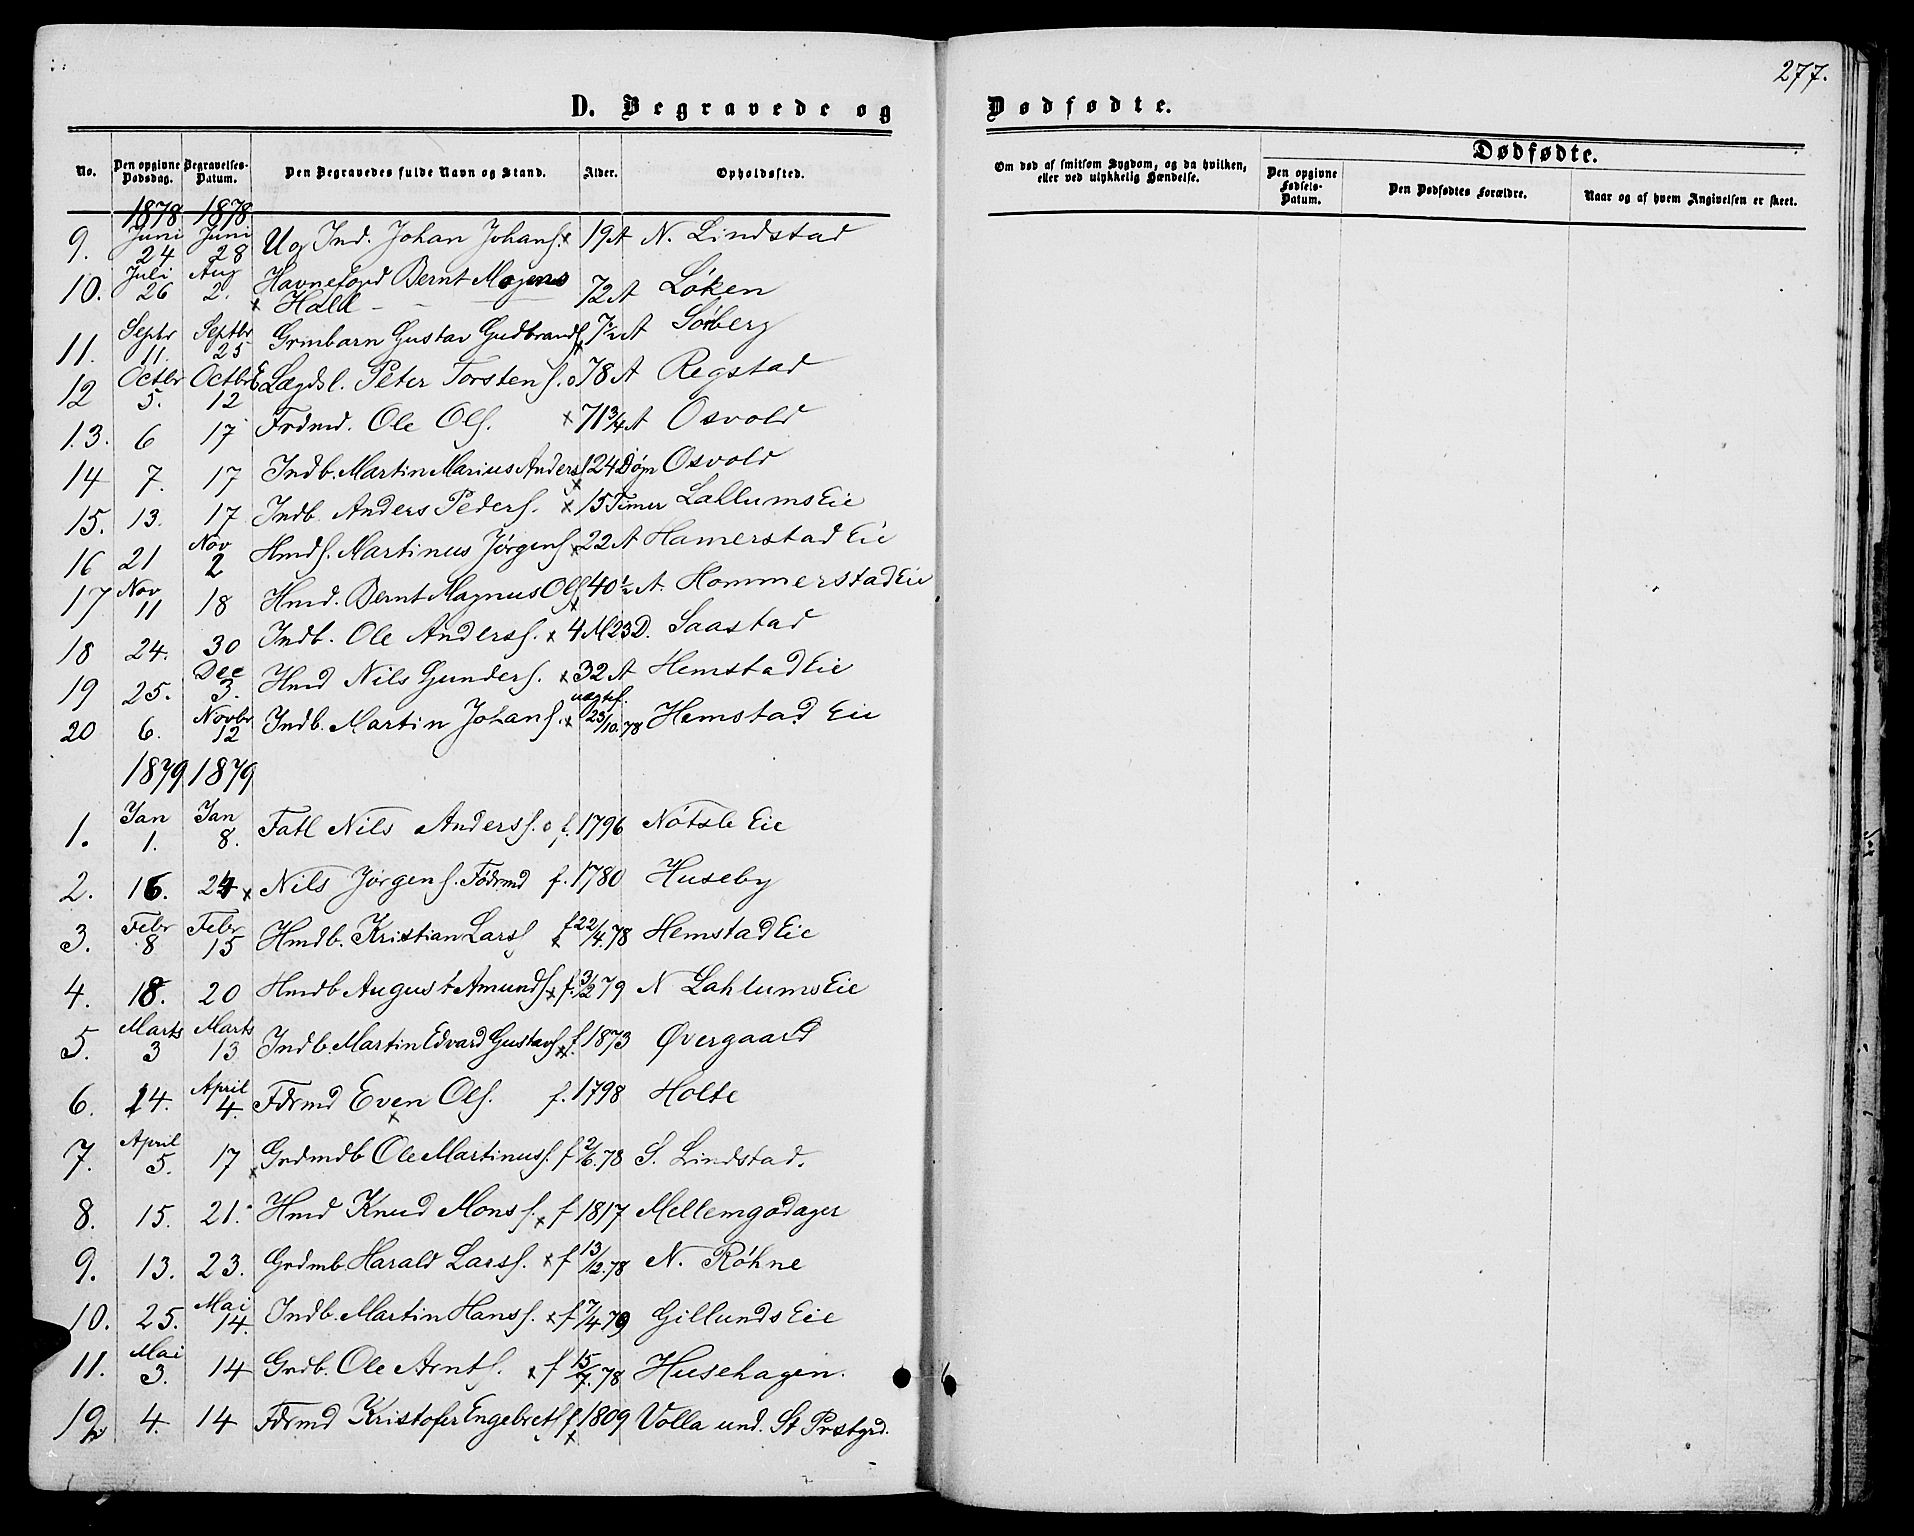 277.
D. Begravede og Dødfødte.
No. Den opgivne Dødsdag. Begravelses-Datum. Den Begravedes fulde Navn og Stand. Alder. Opholdssted.
Om død af smitsom Sygdom, og da hvilken, eller ved ulykkelig Hændelse.
Dødfødte.
Den opgivne Fødsels-Datum. Den Dødfødtes Forældre. Naar og af hvem Angivelsen er skeet.
1878 1878
9. Juni 24 Juni 28 Ug Ind. Johan Johans. x 19 A N. Lindstad
10. Juli 26 Aug 2. Havnefogd Bernt Mogens
x Hald - 72 A Løken
11. Septr 11. Septbr 25 Grmbarn Gustav Gudbrands x 7½ A Sørberg
12 Octbr 5. Octbr 12 Lægdsl. Peter Torstens. o 78 A Regstad
13. 6 17 Frdmd. Ole Ols. x 71¾ A Osvold
14 7. 17 Indb. Martin Marius Anders x 124 Døgn Osvold
15. 13. 17 Indb. Anders Peders. x 15 Timer Lahlums Eie
16 21 Nov 2 Hmds. Martinus Jørgens x 22 A Hamerstad Eie
17 Nov 11 18 Hmd. Bernt Magnus Ols x 40½ A. Hommerstad Eie
18 24. 30 Indb. Ole Anderss. x 4 M 23 D. Saastad
19 25. Dec 3. Hmd Nils Gunders. x 32 A Hemstad Eie
20 6. Novbr 12 Indb. Martin Johans. x uægtef. 23/10.78 Hemstad Eie
1879 1879
1. Jan 1. Jan 8. Fatl Nils Anderss. o f. 1796 Nøtsle Eie
2. 16. 24 x Nils Jørgens. Fødrmd f. 1780 Huseby
3. Febr 8 Febr 15 Hmdb. Kristian Larss x f 22/4.78 Hemstad Eie
4. 18. 20 Hmdb August Amunds x f. 3/2 79 N Lahlums Eie
5. Marts 3 Marts 13 Indb. Martin Edvard Gustavs x f. 1873 Øvergaard
6. 24. April 4. Fdrmd Even Ols. x f. 1798 Holte
7. April 5. 17 x Grdmdb Ole Martinuss. f 2/6.78 S. Lindstad.
8. 15. 21. Hmd Knud Monss. x f 1817 Mellemgodager
9. 13. 23. Grdmb Harald Larss. x f 13/12.78 N. Røhne
10. 25. Mai 14. Indb. Martin Hanss. x f 7/4 79 Gillunds Eie
11. Mai 3. 14 Grdb. Ole Arnts. x f 15/7.78 Husehagen.
12 4. 14 Fdrmd Kristofer Engebrets f x 1809 Volla und. St Prstgrd.